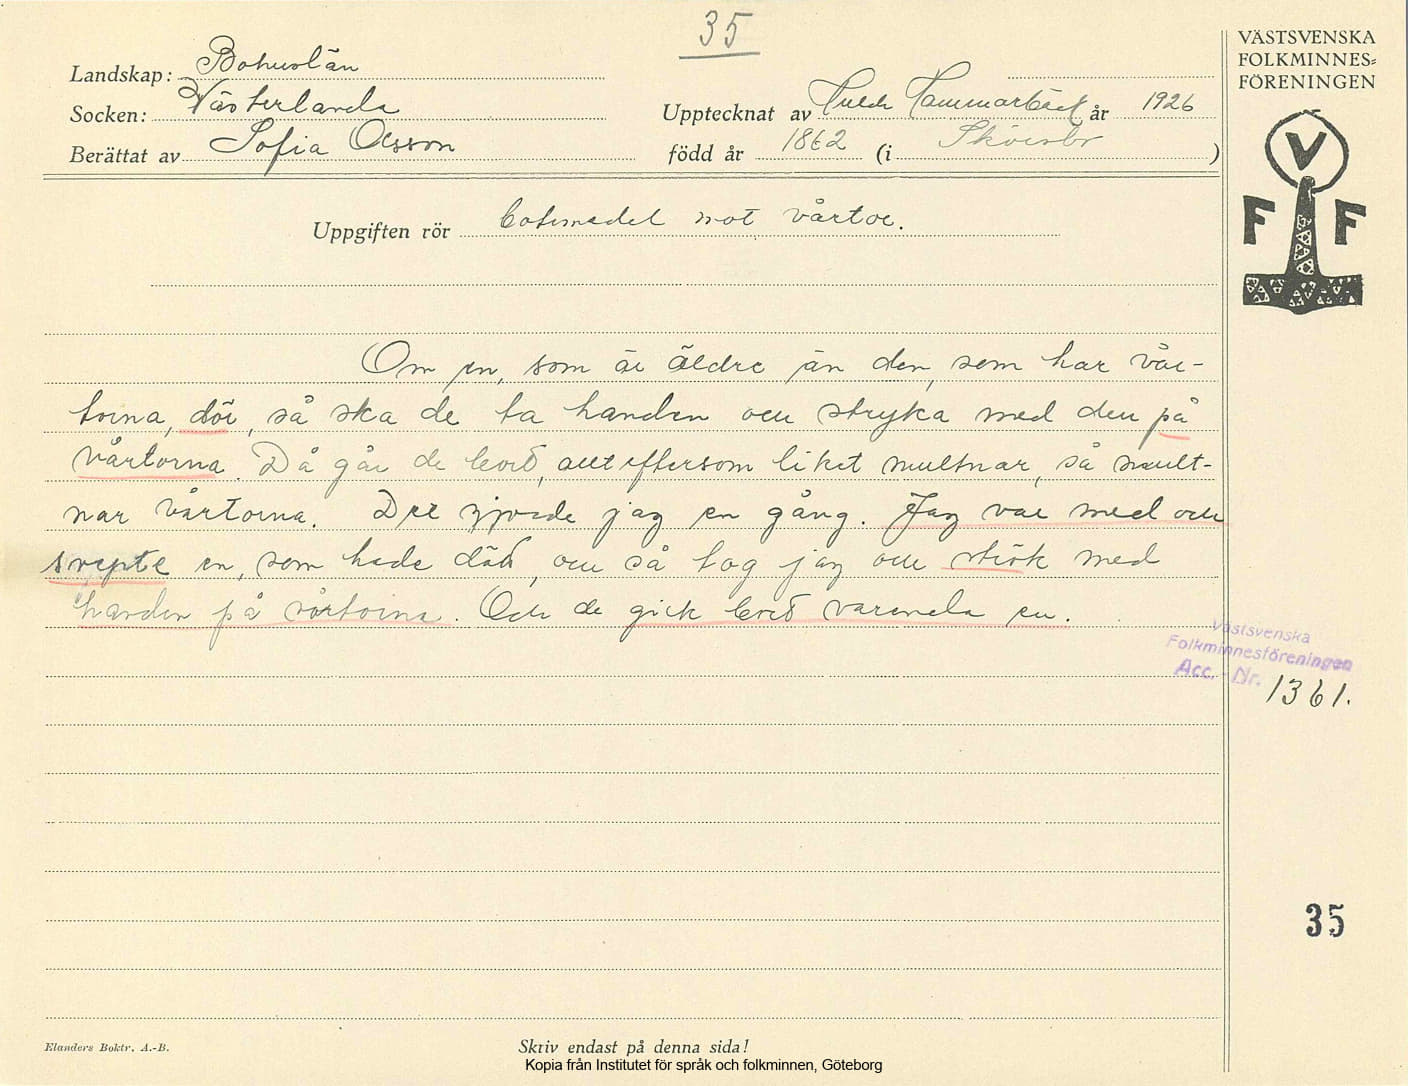 35
VÄSTSVENSKA
FOLKMINNES=
FÖRENINGEN
V
F F
Landskap: Bohuslän
Socken: Västerlanda
Upptecknat av Hulda Hammarbäck år 1926
Berättat av Sofia Olsson
född år 1862 (i )
Uppgiften rör Botemedel mot vårtor.
Om en, som är äldre än den, som har vår-
torna, dör, så ska de ta handen och stryka med den på
vårtorna. Då går de bort, allt eftersom liket multnar, så mult-
nar vårtorna. Det gjorde jag en gång. Jag var med och
svepte en, som hade dött, och så tog jag och strök med
handen på vårtorna. Och de gick bort varenda en.
Västsvenska
Folkminnesföreningen
Acc. - Nr. 1361.
35
Elanders Boktr. A.-B.
Skriv endast på denna sida!
Kopia från Institutet för språk och folkminnen, Göteborg